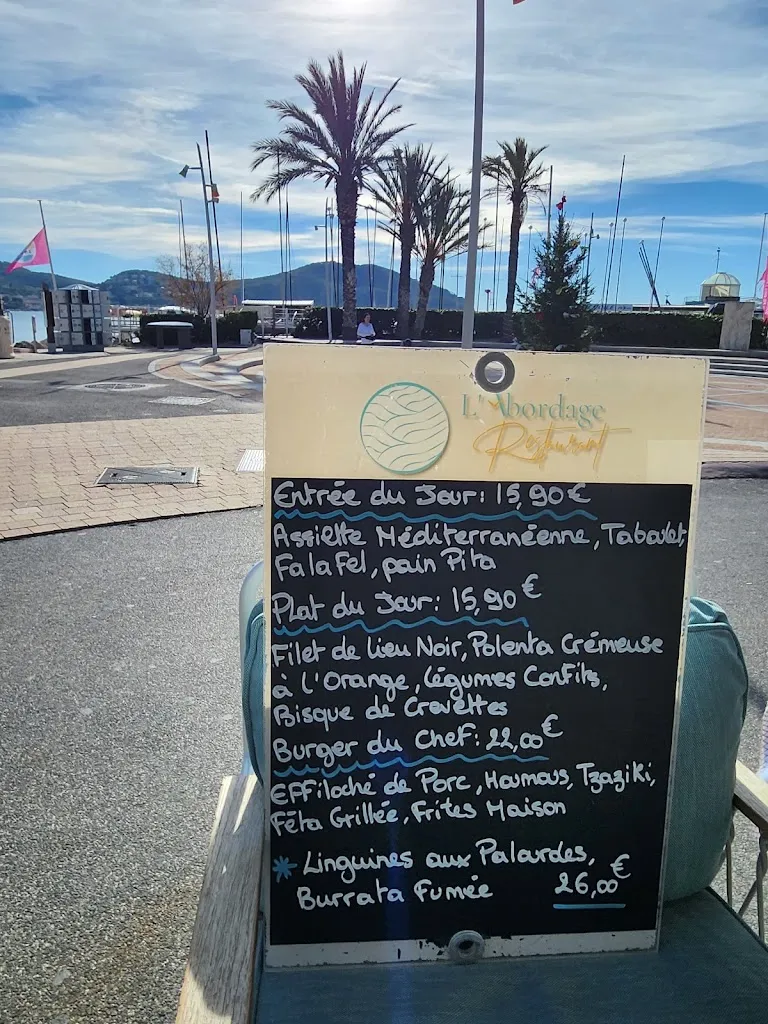 L'Abordage
Restaurant
Entrée du Jour: 15,90€
Assiette Méditerranéenne, Taboulet,
Falafel, pain Pita
Plat du Jour: 15,90€
Filet de Lieu Noir, Polenta Crémeuse
à l'Orange, légumes Confits,
Bisque de Crevettes
Burger du Chef: 22,00€
Effiloché de Porc, Houmous, Tzaziki,
Féta Grillée, Frites Maison
* Linguines aux Palourdes,
Burrata Fumée 26,00€